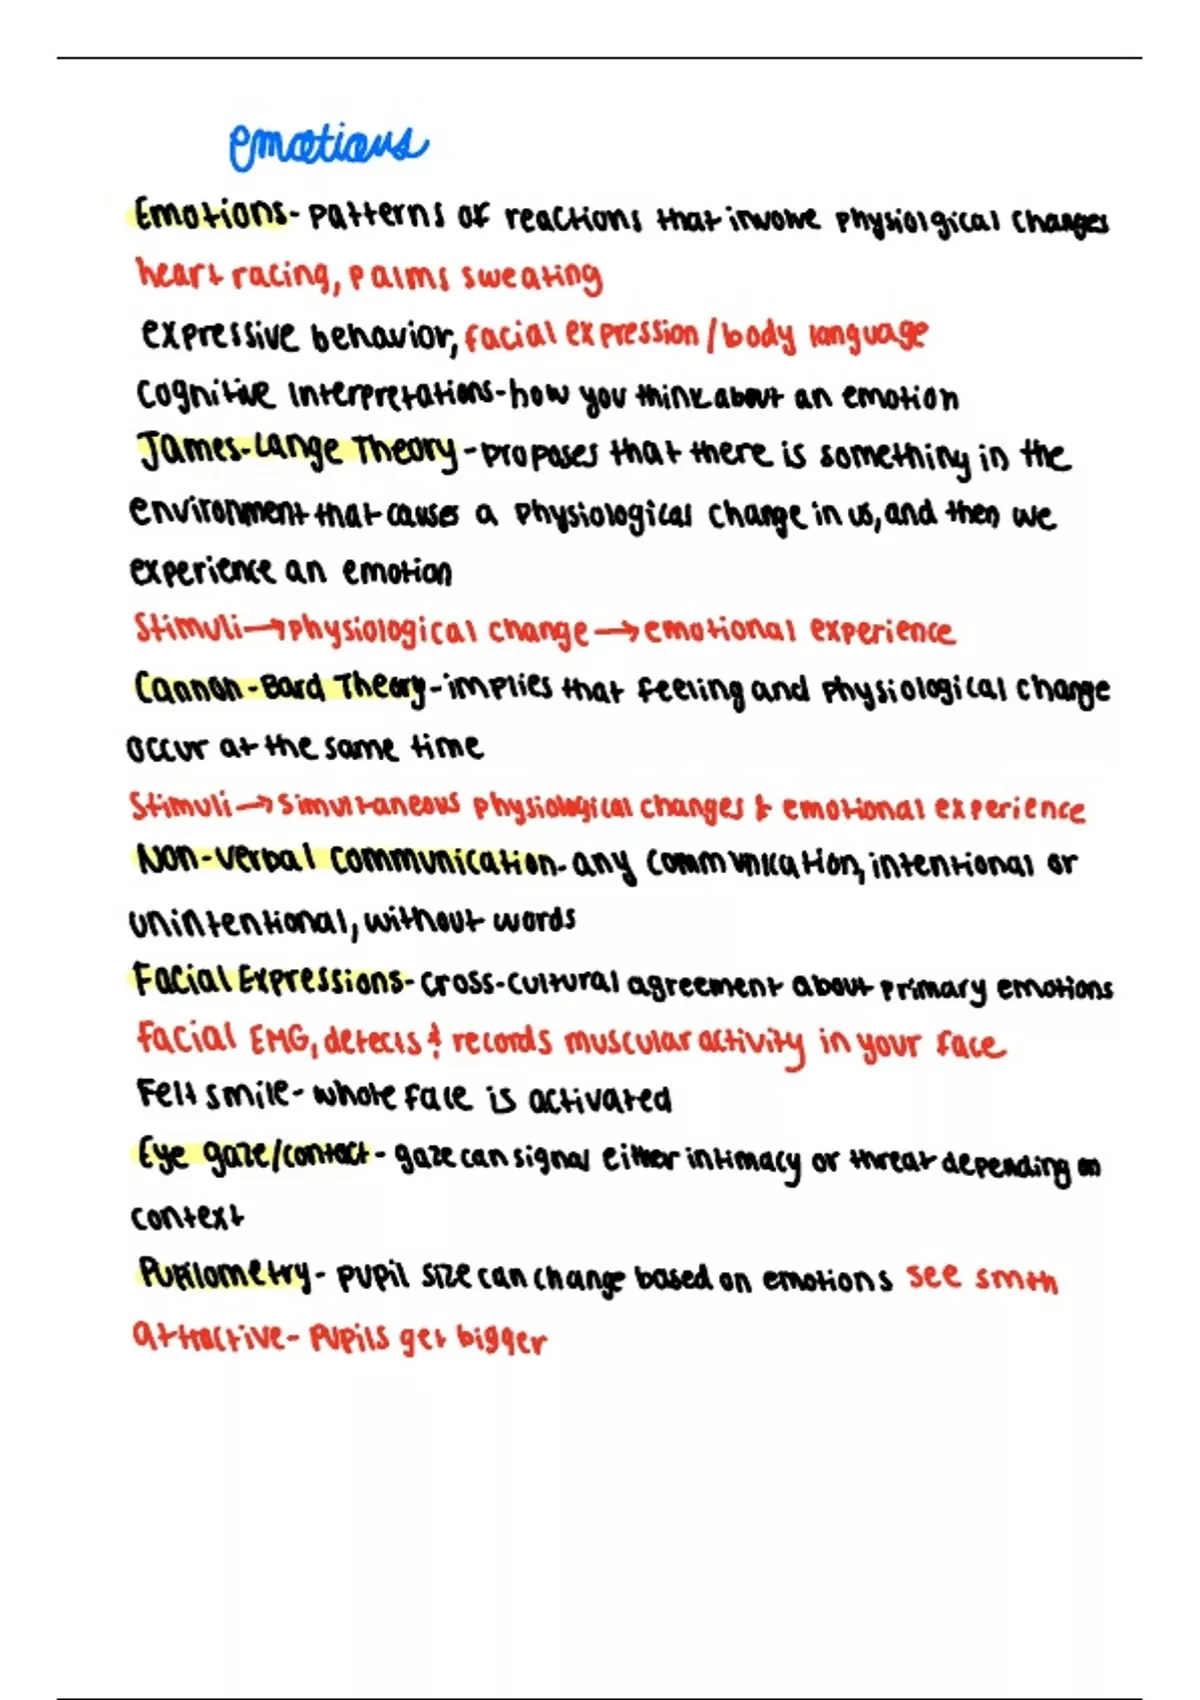 emotions
Emotions- patterns of reactions that involve physiolgical changes
heart racing, palms sweating
expressive behavior, facial expression/body language
cognitive interpretations-how you think about an emotion
James-Lange Theory-proposes that there is something in the
environment that causes a physiological change in us, and then we
experience an emotion
Stimuli→physiological change→emotional experience
Cannon-Bard Theory-implies that feeling and physiological change
occur at the same time
Stimuli→simultaneous physiological changes & emotional experience
Non-verbal communication-any communication, intentional or
unintentional, without words
Facial Expressions-cross-cultural agreement about primary emotions
Facial EMG, detects & records muscular activity in your face
Felt smile-whole face is activated
Eye gaze/contact-gaze can signal either intimacy or threat depending on
context
Pupilometry-pupil size can change based on emotions see smth
attractive-pupils get bigger